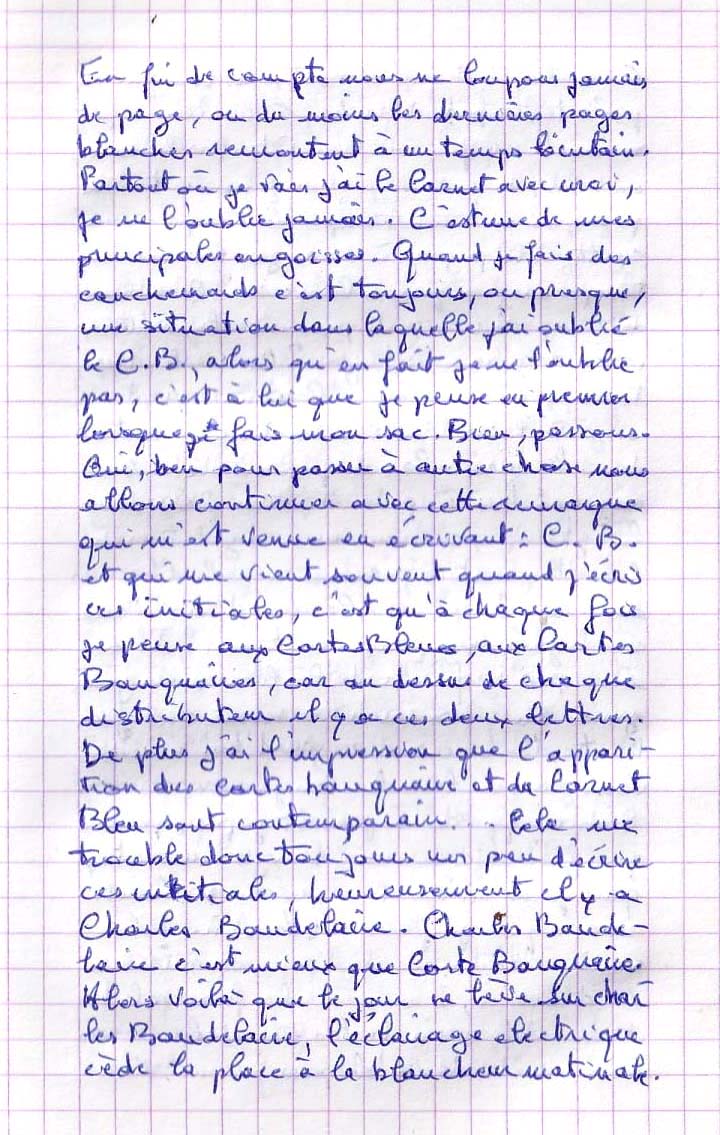 En fin de compte nous ne loupons jamais
de page, ou du moins les dernières pages
blanches remontent à un temps lointain.
Partout où je vais j'ai le Carnet avec moi,
je ne l'oublie jamais. C'est une de mes
principales angoisses. Quand je fais des
cauchemards c'est toujours, ou presque,
une situation dans laquelle j'ai oublié
le C.B., alors qu'en fait je ne l'oublie
pas, c'est à lui que je pense en premier
lorsque je fais mon sac. Bien, passons.
Oui, ben pour passer à autre chose nous
allons continuer avec cette remarque
qui m'est venue en écrivant : C. B.
et qui me vient souvent quand j'écris
ces initiales, c'est qu'à chaque fois
je pense aux Cartes Bleues, aux Cartes
Banquaires, car au dessus de chaque
distributeur il y a ces deux lettres.
De plus j'ai l'impression que l'appari-
tion des cartes banquaire et du Carnet
Bleu sont contemporain... Cela me
trouble donc toujours un peu d'écrire
ces initiales, heureusement il y a
Charles Baudelaire. Charles Baude-
laire c'est mieux que Carte Banquaire.
Alors voilà que le jour se lève sur Char
les Baudelaire, l'éclairage electrique
cède la place à la blancheur matinale.